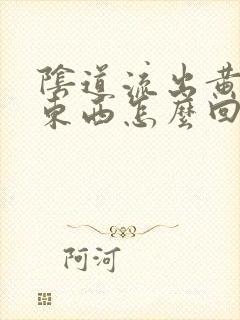 陰道流出黃
東西怎麼回
阿河